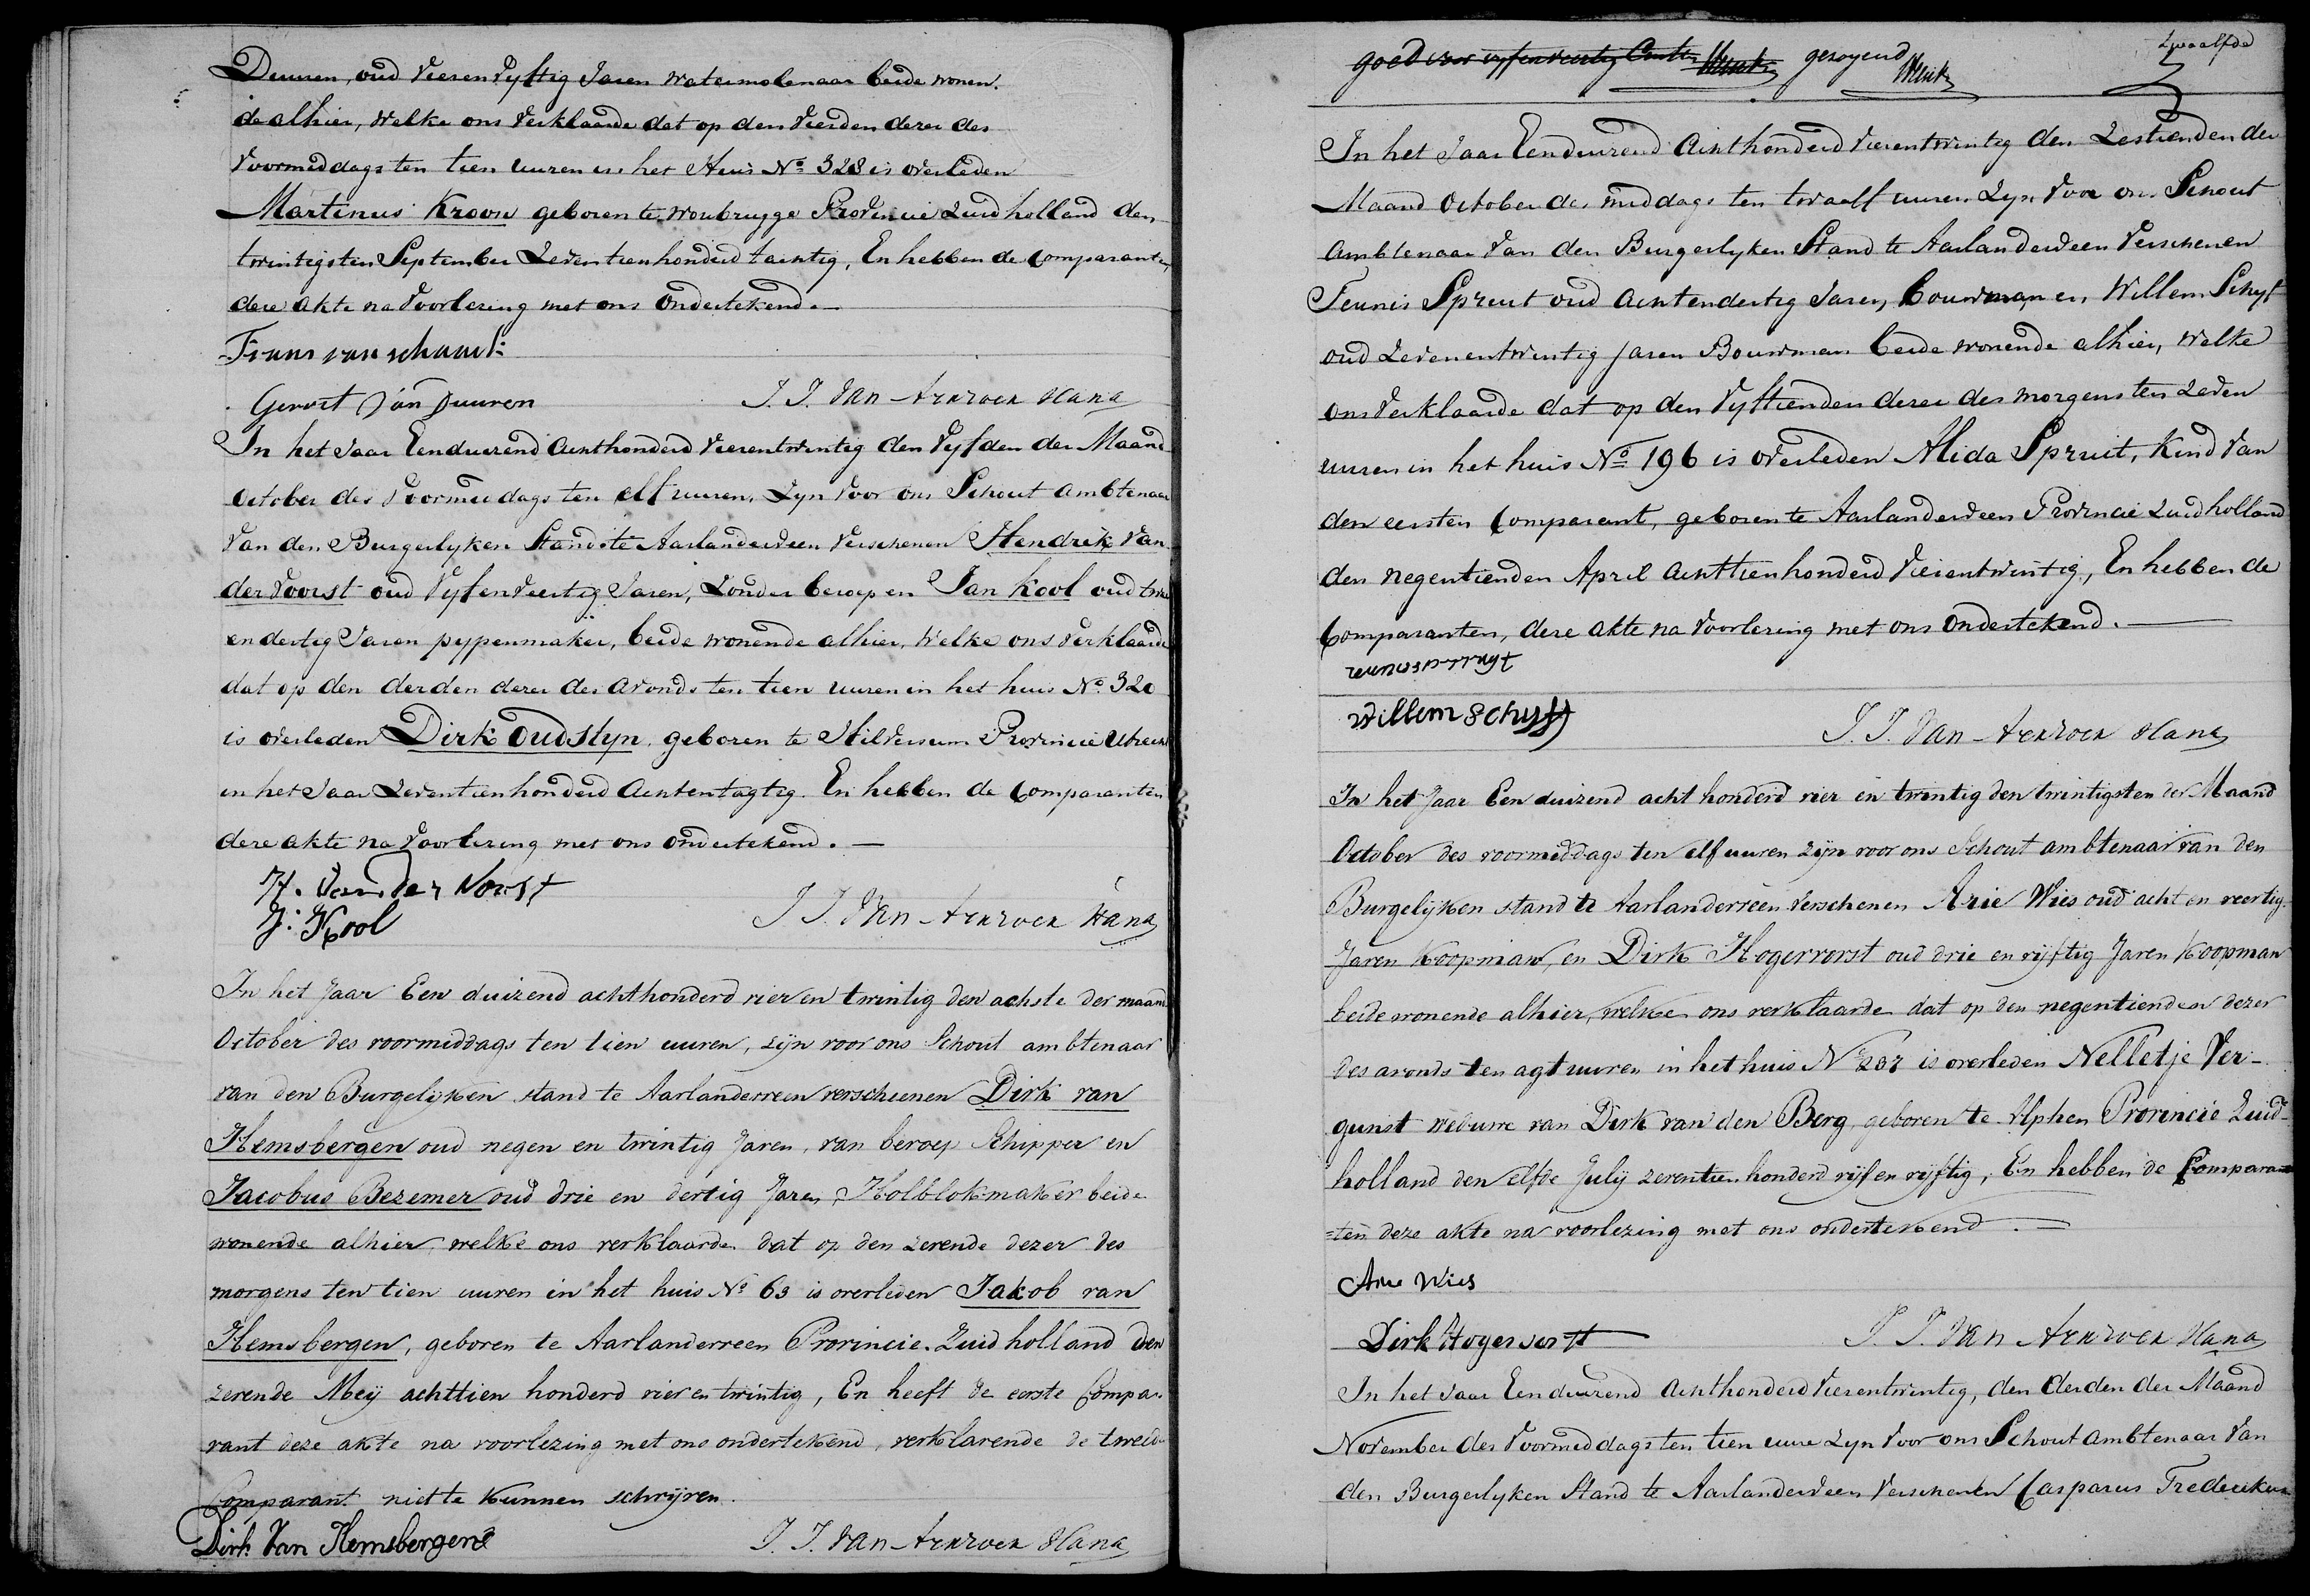 Duuren, oud Vierenvyftig Jaren watermolenaar beide wonen.
de alhier, welke ons Verklaarde dat op den Vierden dezer des
Voormiddags ten tien uuren in het Huis No 328 is overleden
Martinus Kroon geboren te woubrugge Provincie Zuidholland den
twintigsten September Zeventienhonderd tachtig, En hebben de Comparanten
deze akte na Voorlezing met ons Ondertekend.
Frans van schaik
Gerrit van Duuren
J. J. Van Aenzoen Hana
In het Jaar Eenduizend Achthonderd Vierentwintig den Vyfden der Maand
October des Voormiddags ten elf uuren, Zyn Voor ons Schout ambtenaar
Van den Burgerlyken Stand te Aarlanderveen Verschenen Hendrik Van
der Voorst oud Vyfenveertig Jaren, Zonder beroep en Jan Kool oud twee
en dertig Jaren pypenmaker, beide wonende alhier, Welke ons Verklaarde
dat op den derden dezer des avonds ten tien uuren in het huis No 320
is overleden Dirk Oudslyn, geboren te Hilversum Provincie Utrecht
in het Jaar Zeventienhonderd Achtentagtig. En hebben de Comparanten
deze akte na Voorlezing met ons ondertekend.
H. van der Voorst
J: Kool
J J. Van Aenzoen Hana
In het Jaar Een duizend achthonderd vier en twintig den achste der maand
October des voormiddags ten tien uuren, zijn voor ons Schout ambtenaar
van den Burgelijken stand te Aarlanderveen verscheenen Dirk van
Hemsbergen oud negen en twintig Jaren, van beroep Schipper en
Jacobus Bezemer oud drie en dertig Jaren, Holblokmaker beide
wonende alhier, welke ons verklaarde dat op den zevende dezer des
morgens ten tien uuren in het huis No 63 is overleden Jakob van
Hemsbergen, geboren te Aarlanderveen Provincie Zuid holland den
zevende Meij achttien honderd vier en twintig, En heeft de eerste Compa-
rant deze akte na voorlezing met ons ondertekend, verklarende de tweede
Comparant niet te kunnen schrijven.
Dirk Van Hemsbergen
J. J. Van Aenzoen Hana
goed voor vyfenveertig Centen gezoyeerd
twaalfde
In het Jaar Eenduizend Achthonderd Vierentwintig den Zestienden der
Maand October des middags ten twaalf uuren Zyn Voor ons Schout
Ambtenaar Van den Burgerlyken Stand te Aarlanderveen Verschenen
Teunis Spruit oud Achtendertig Jaren, bouwman en Willem Schyf
oud Zevenentwintig jaren Bouwman beide wonende alhier, Welke
ons Verklaarde dat op den Vyftienden dezer des morgens ten Zeven
uuren in het huis No 196 is overleden Alida Spruit, Kind Van
den eersten Comparant, geboren te Aarlanderveen Provincie Zuidholland
den negentienden April Achttienhonderd Vierentwintig, En hebben de
Comparanten, deze akte na Voorlezing met ons Ondertekend.
teunis spruyt
Willem Schyff
J. J. Van Aenzoen Hana
In het Jaar Een duizend acht honderd vier en twintig den twintigsten der Maand
October des voormiddags ten elf uuren zijn voor ons Schout ambtenaar van den
Burgelijken stand te Aarlanderveen verschenen Arie Wies oud acht en veertig
Jaren Koopman, en Dirk Hogervorst oud drie en vijftig Jaren Koopman
beide wonende alhier, welke ons verklaarde dat op den negentienden dezer
des avonds ten agt uuren in het huis No 237 is overleden Nelletje Ver-
gunst weduwe van Dirk van den Berg, geboren te Alphen Provincie Zuid-
holland den elfde July zeventien honderd vijf en vijftig, En hebben de Comparan
=ten deze akte na voorlezing met ons ondertekend.
Arie Wies
Dirk Hogervorst
J. J. Van Aenzoen Hana
In het Jaar Eenduizend Achthonderd Vierentwintig, den derden der Maand
November des Voormiddags ten tien uure Zyn Voor ons Schout ambtenaar Van
den Burgerlyken Stand te Aarlanderveen Verschenen Casparus Frederikus